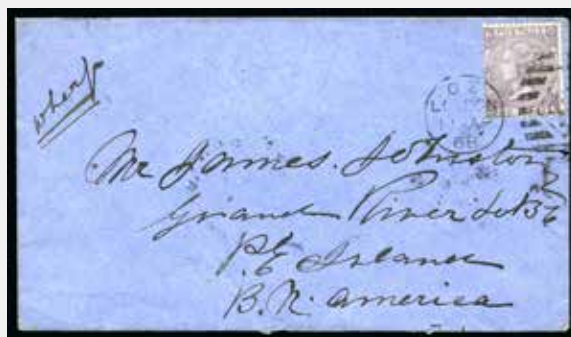 wharf
Mr James. Johnston
Grand River Lot 36
P.E Island
B.N. America